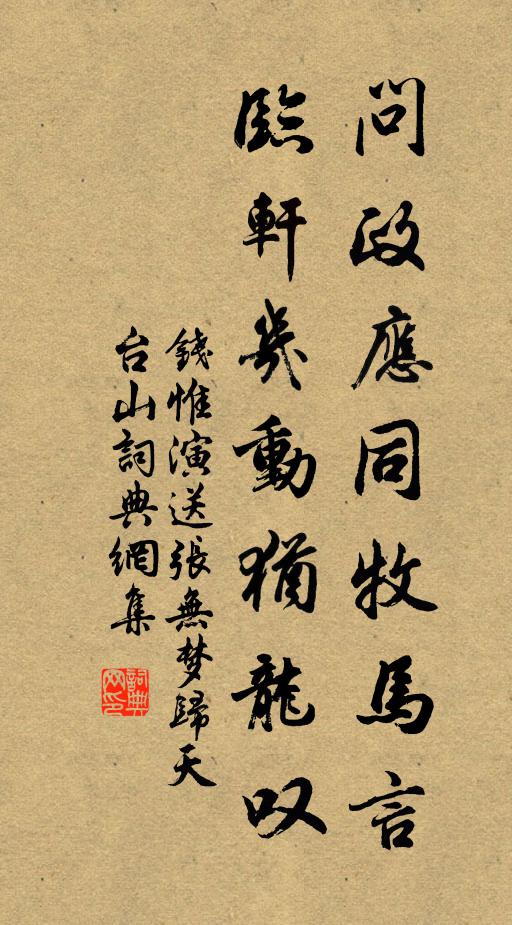 問政應同牧馬言
臨軒幾動猶龍叹
錢惟演送張無梦歸天
台山詞典網集
詞典网印